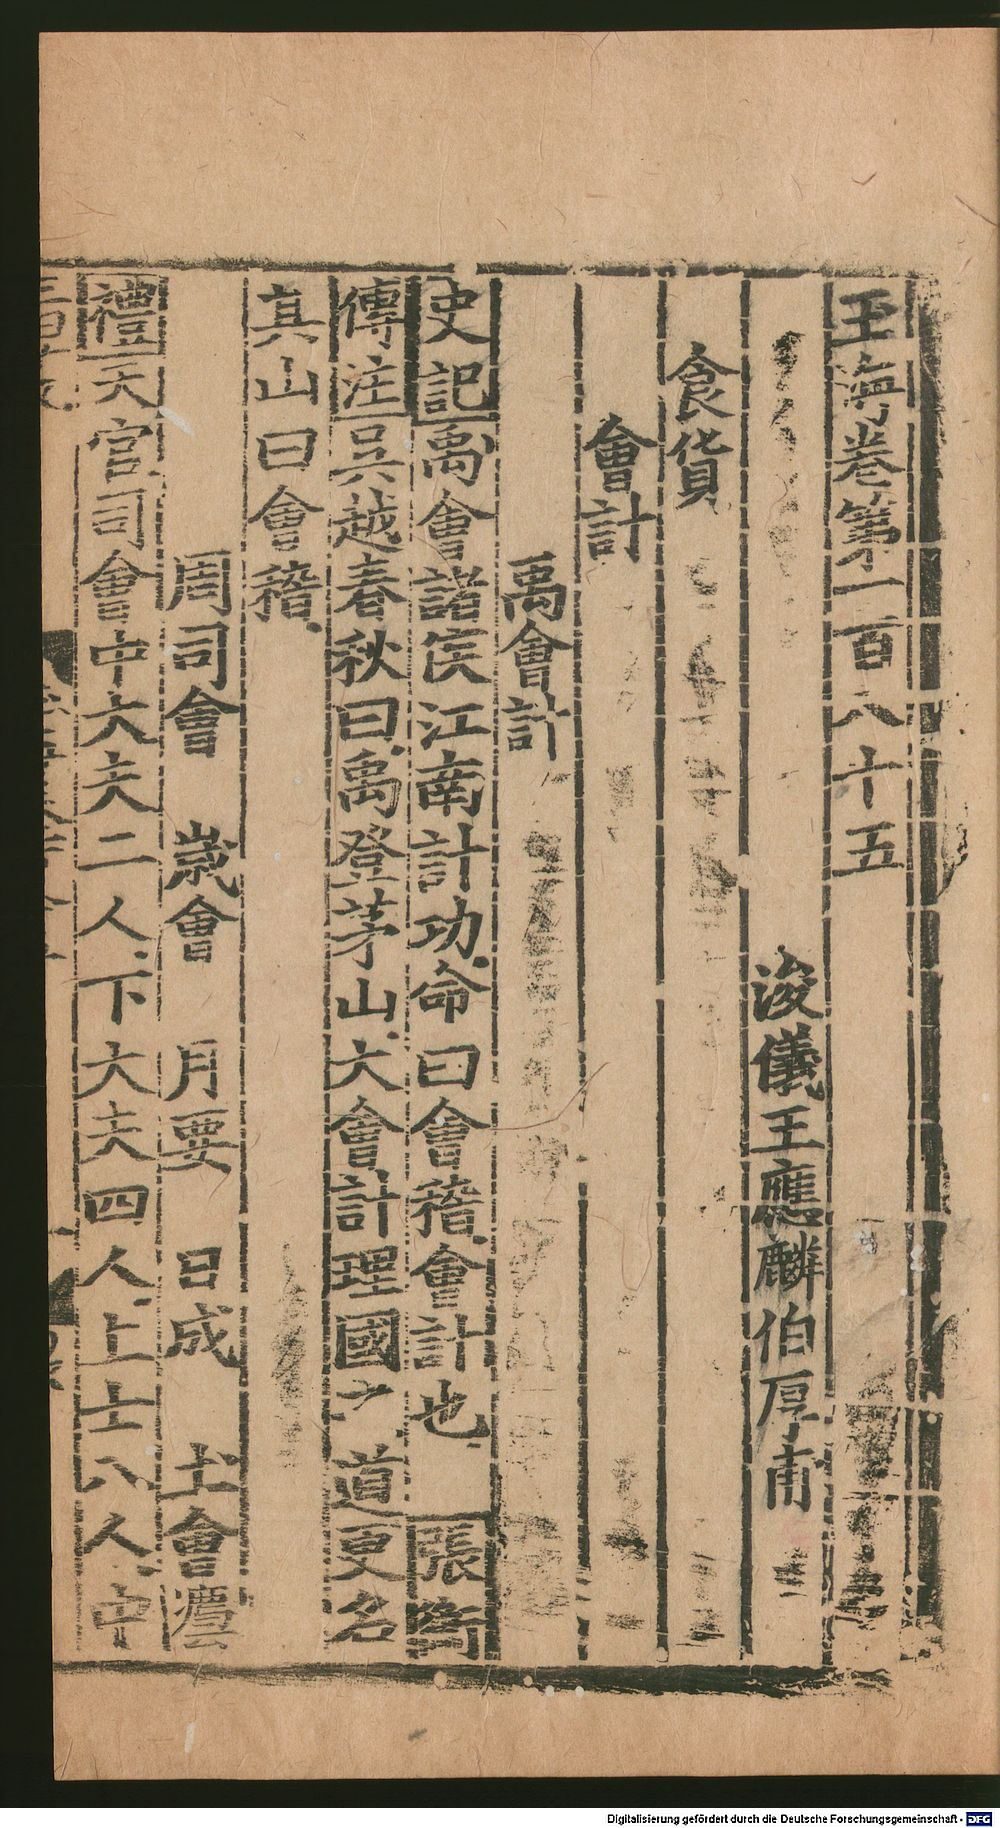 玉海卷第一百八十五
浚儀王應麟伯厚甫
食貨
會計
禹會計
史記禹會諸侯江南計功命曰會稽會計也 張晏
傳注吳越春秋曰禹登茅山大會計理國之道更名
其山曰會稽
周司會 歲會 月要 日成 士會
禮天官司會中大夫二人下大夫四人上士八人中
Digitalisierung gefördert durch die Deutsche Forschungsgemeinschaft - DFG